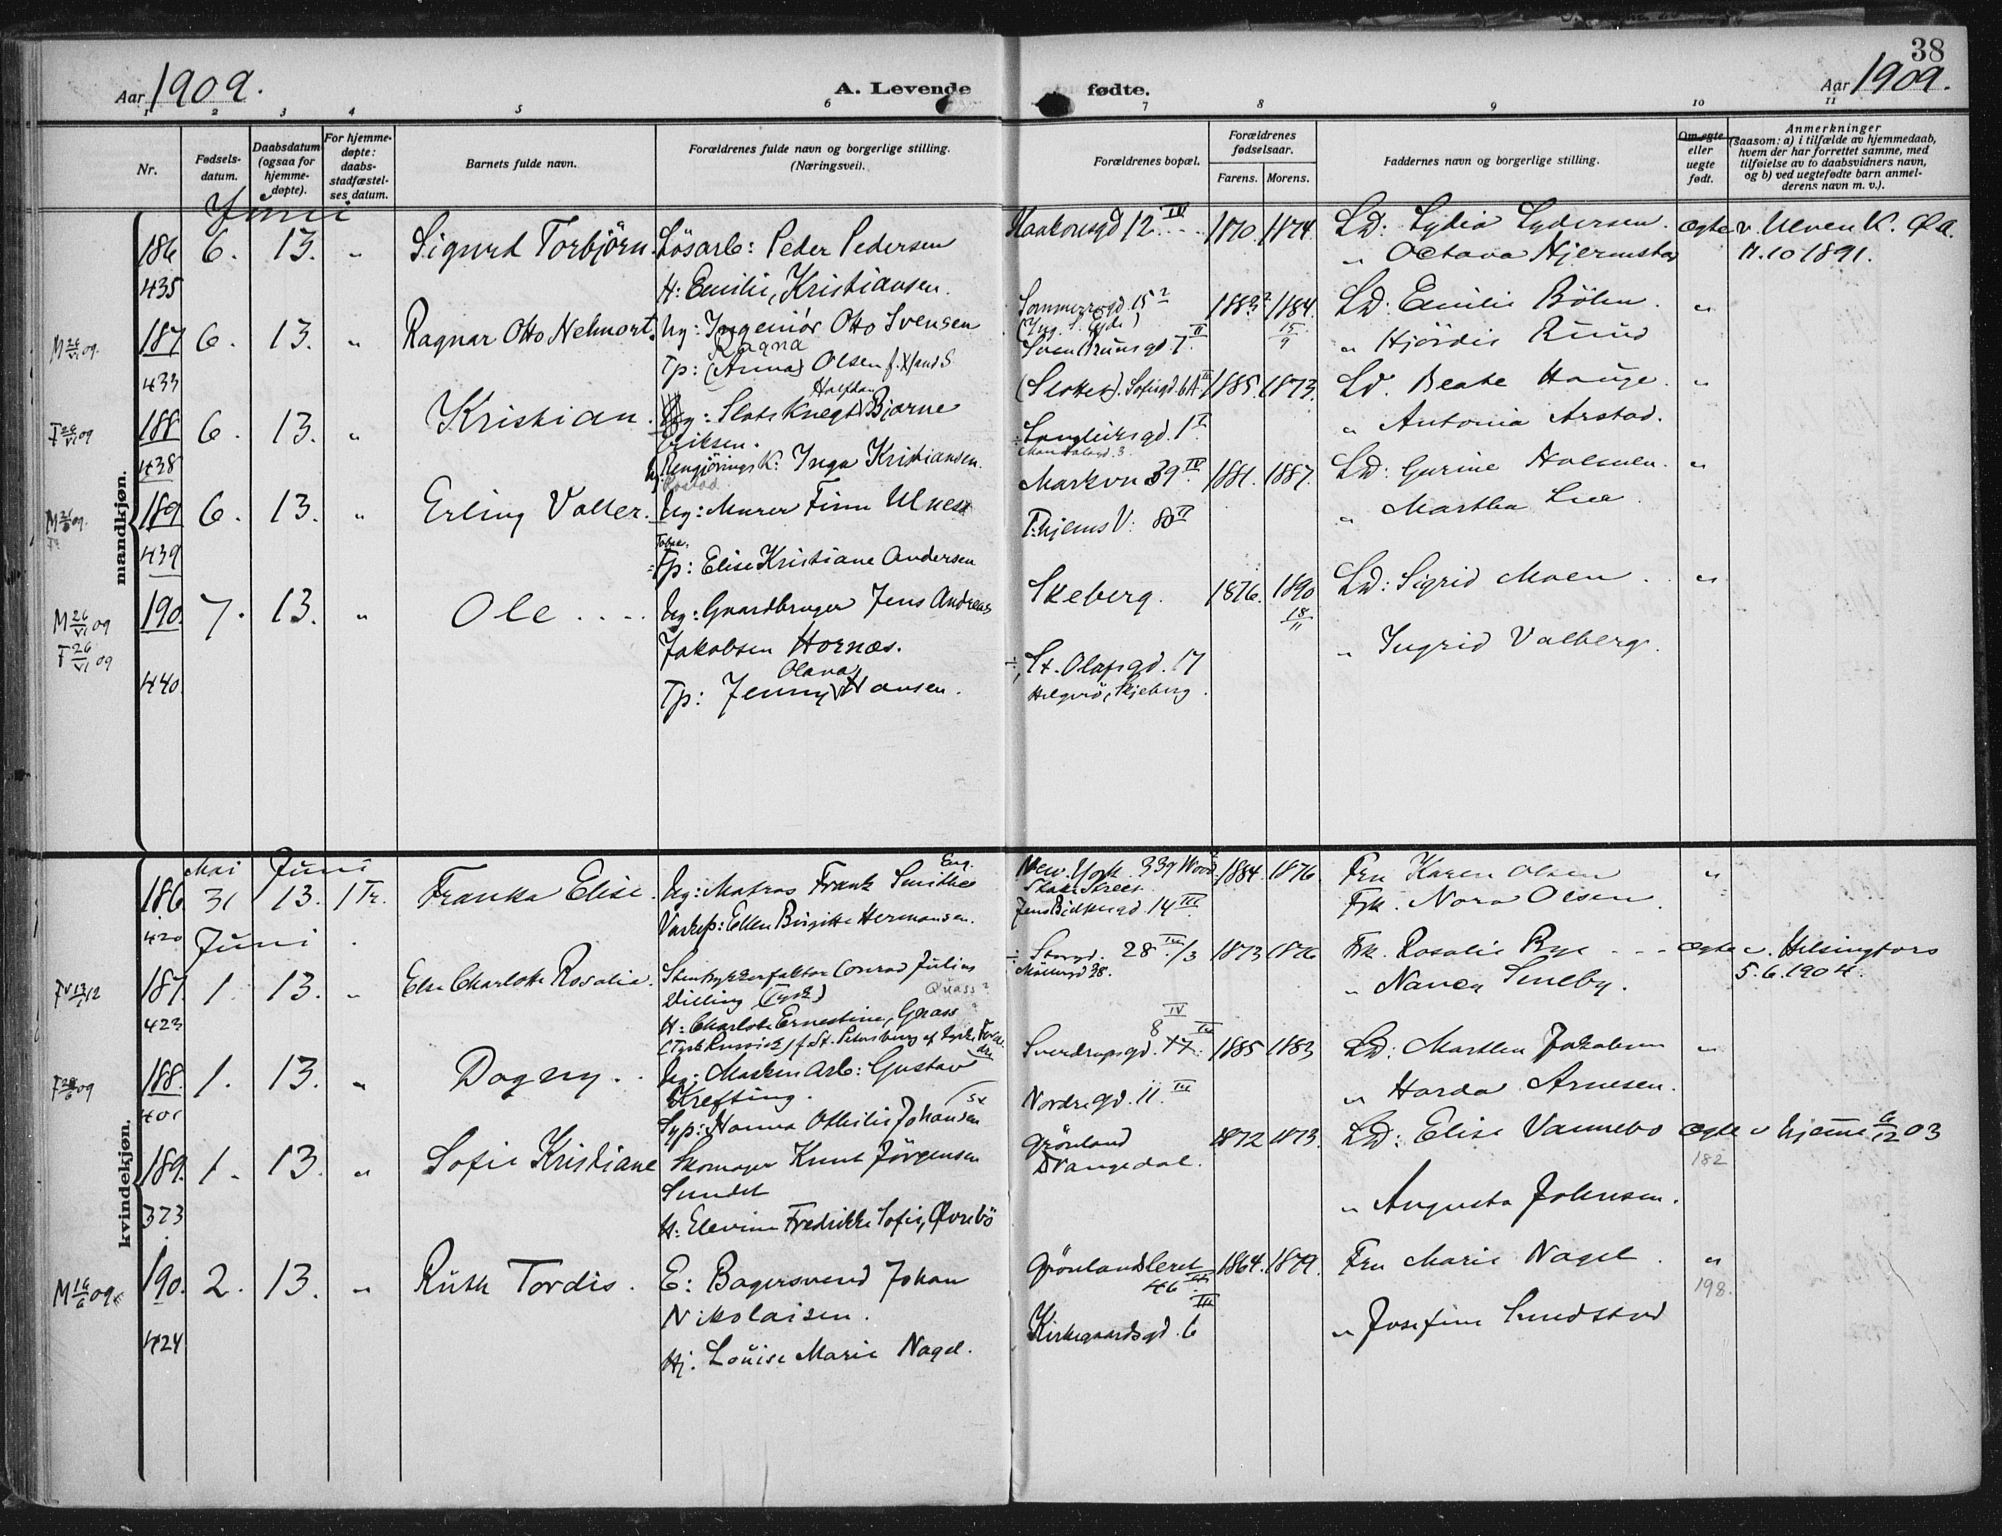 38
Aar 1909.
A. Levende fødte.
Aar 1909.
1 2 3 4 5 6 7 8 9 10 11
Nr.
Fødsels-
datum.
Daabsdatum
(ogsaa for
hjemme-
døpte).
For hjemme-
døpte:
daabs-
stadfæstel-
ses datum.
Barnets fulde navn.
Forældrenes fulde navn og borgerlige stilling.
(Næringsvei).
Forældrenes bopæl.
Forældrenes
fødselsaar.
Farens. Morens.
Faddernes navn og borgerlige stilling.
Om egte
eller
uegte
født.
Anmerkninger
(saasom: a) i tilfælde av hjemmedaab,
hvem der har forrettet samme, med
tilføielse av to daabsvidners navn,
og b) ved uegtefødte barn anmel-
derens navn m. v.).
mandkjøn.
Juni
186 6. 13. " Sigurd Torbjörn. Lösarb: Peder Pedersen Haakonsgd 12 IV 1870. 1874. Ld: Lydia Lydersen. ægte v. Ulven K.
" Octava Hjermstad 17.10 1891.
435
H: Emilie, Kristiansen.
187 6. 13. " Ragnar Otto Nelmort. Ug: Ingeniör Otto Svensen Sommerrogd 15 1883? 1884. Ld: Emilie Böhn. "
15/9
Ragna
Tp: (Anna) Olsen " Hjördis Ruud
433
Halfdan
188 6. 13. " Kristian. Ug: Slotsknegt Bjarne (Slottet). Sofiegd 6A 1885. 1873. Ld. Beate Hauge. "
Eriksen. Langleiksgd. 1 " Antonia Arstad.
438
Rengjörings K: Inga Kristiansen.
189 6. 13. " Erling Valter. Ug: Murer Finn Ulness Markvn 39 IV 1881. 1887. Ld: Gurine Holmen. "
T.hjems V. 80 II " Martha Lie.
439
Tp: Elise Kristiane Andersen
M 26/VI 09
F 26/VI 09
190. 7. 13. " Ole Ug: Gaardbruger Jens Andreas Skeberg. 1876. 1890 Ld: Sigrid Moen. "
18/11
Jakobsen Hornæs. " Ingrid Valberg.
Olava
440. Tp: Jenny Hansen. St. Olafsgd. 17
Skjeberg.
kvindekjøn.
Mai Juni
186. 31 13. 1 Tr. Franka Elise. Ug: Matros Frank Smithe Eng. New York. 339 Wood 1884. 1876. Fru Karen Olsen "
Vaskep: Ellen Birgitte Hermansen. Jens Bjelkesgd 14 III Frk. Nora Olsen.
420
Juni
187. 1. 13. " Else Charlotte Rosalie. Stentrykkerfaktor Conrad Julius Storgd. 28 1873 1876 Frk. Rosalie Rye ægte v. Helsingfors
Möllergd 38. " Nancy Smeby. 5.6.1904.
Willing (Tysk) Quass?
423
H: Charlotte Ernestine, Grass
188. 1. 13. " Dagny. Ug: Maskinarb: Gustav Sverdrupsgd. 1885 1883 Ld: Marthea Jakobsen "
Krefting. Nordregd. 11. III " Harda Arnesen.
401
Syp: Hanna Othilie Johansen
189. 1. 13. " Sofie Kristiane Skomager Knut Jörgensen Grönland 1872 1873. Ld: Elise Vannebo ægte v hjemme 6/12 03
182
Sundet Drangedal. " Augusta Johnsen.
373
H: Elevine Fredrikke Sofie, Øvrebö
190. 2. 13. " Ruth Tordis. E: Bagersvend Johan Grönlandsleret 1864. 1879. Fru Marie Nagel. "
46 198.
Nikolaisen. Kirkegaardsgd. 6 III " Josefine Sundstad
424
Hj. Louise Marie Nagel.